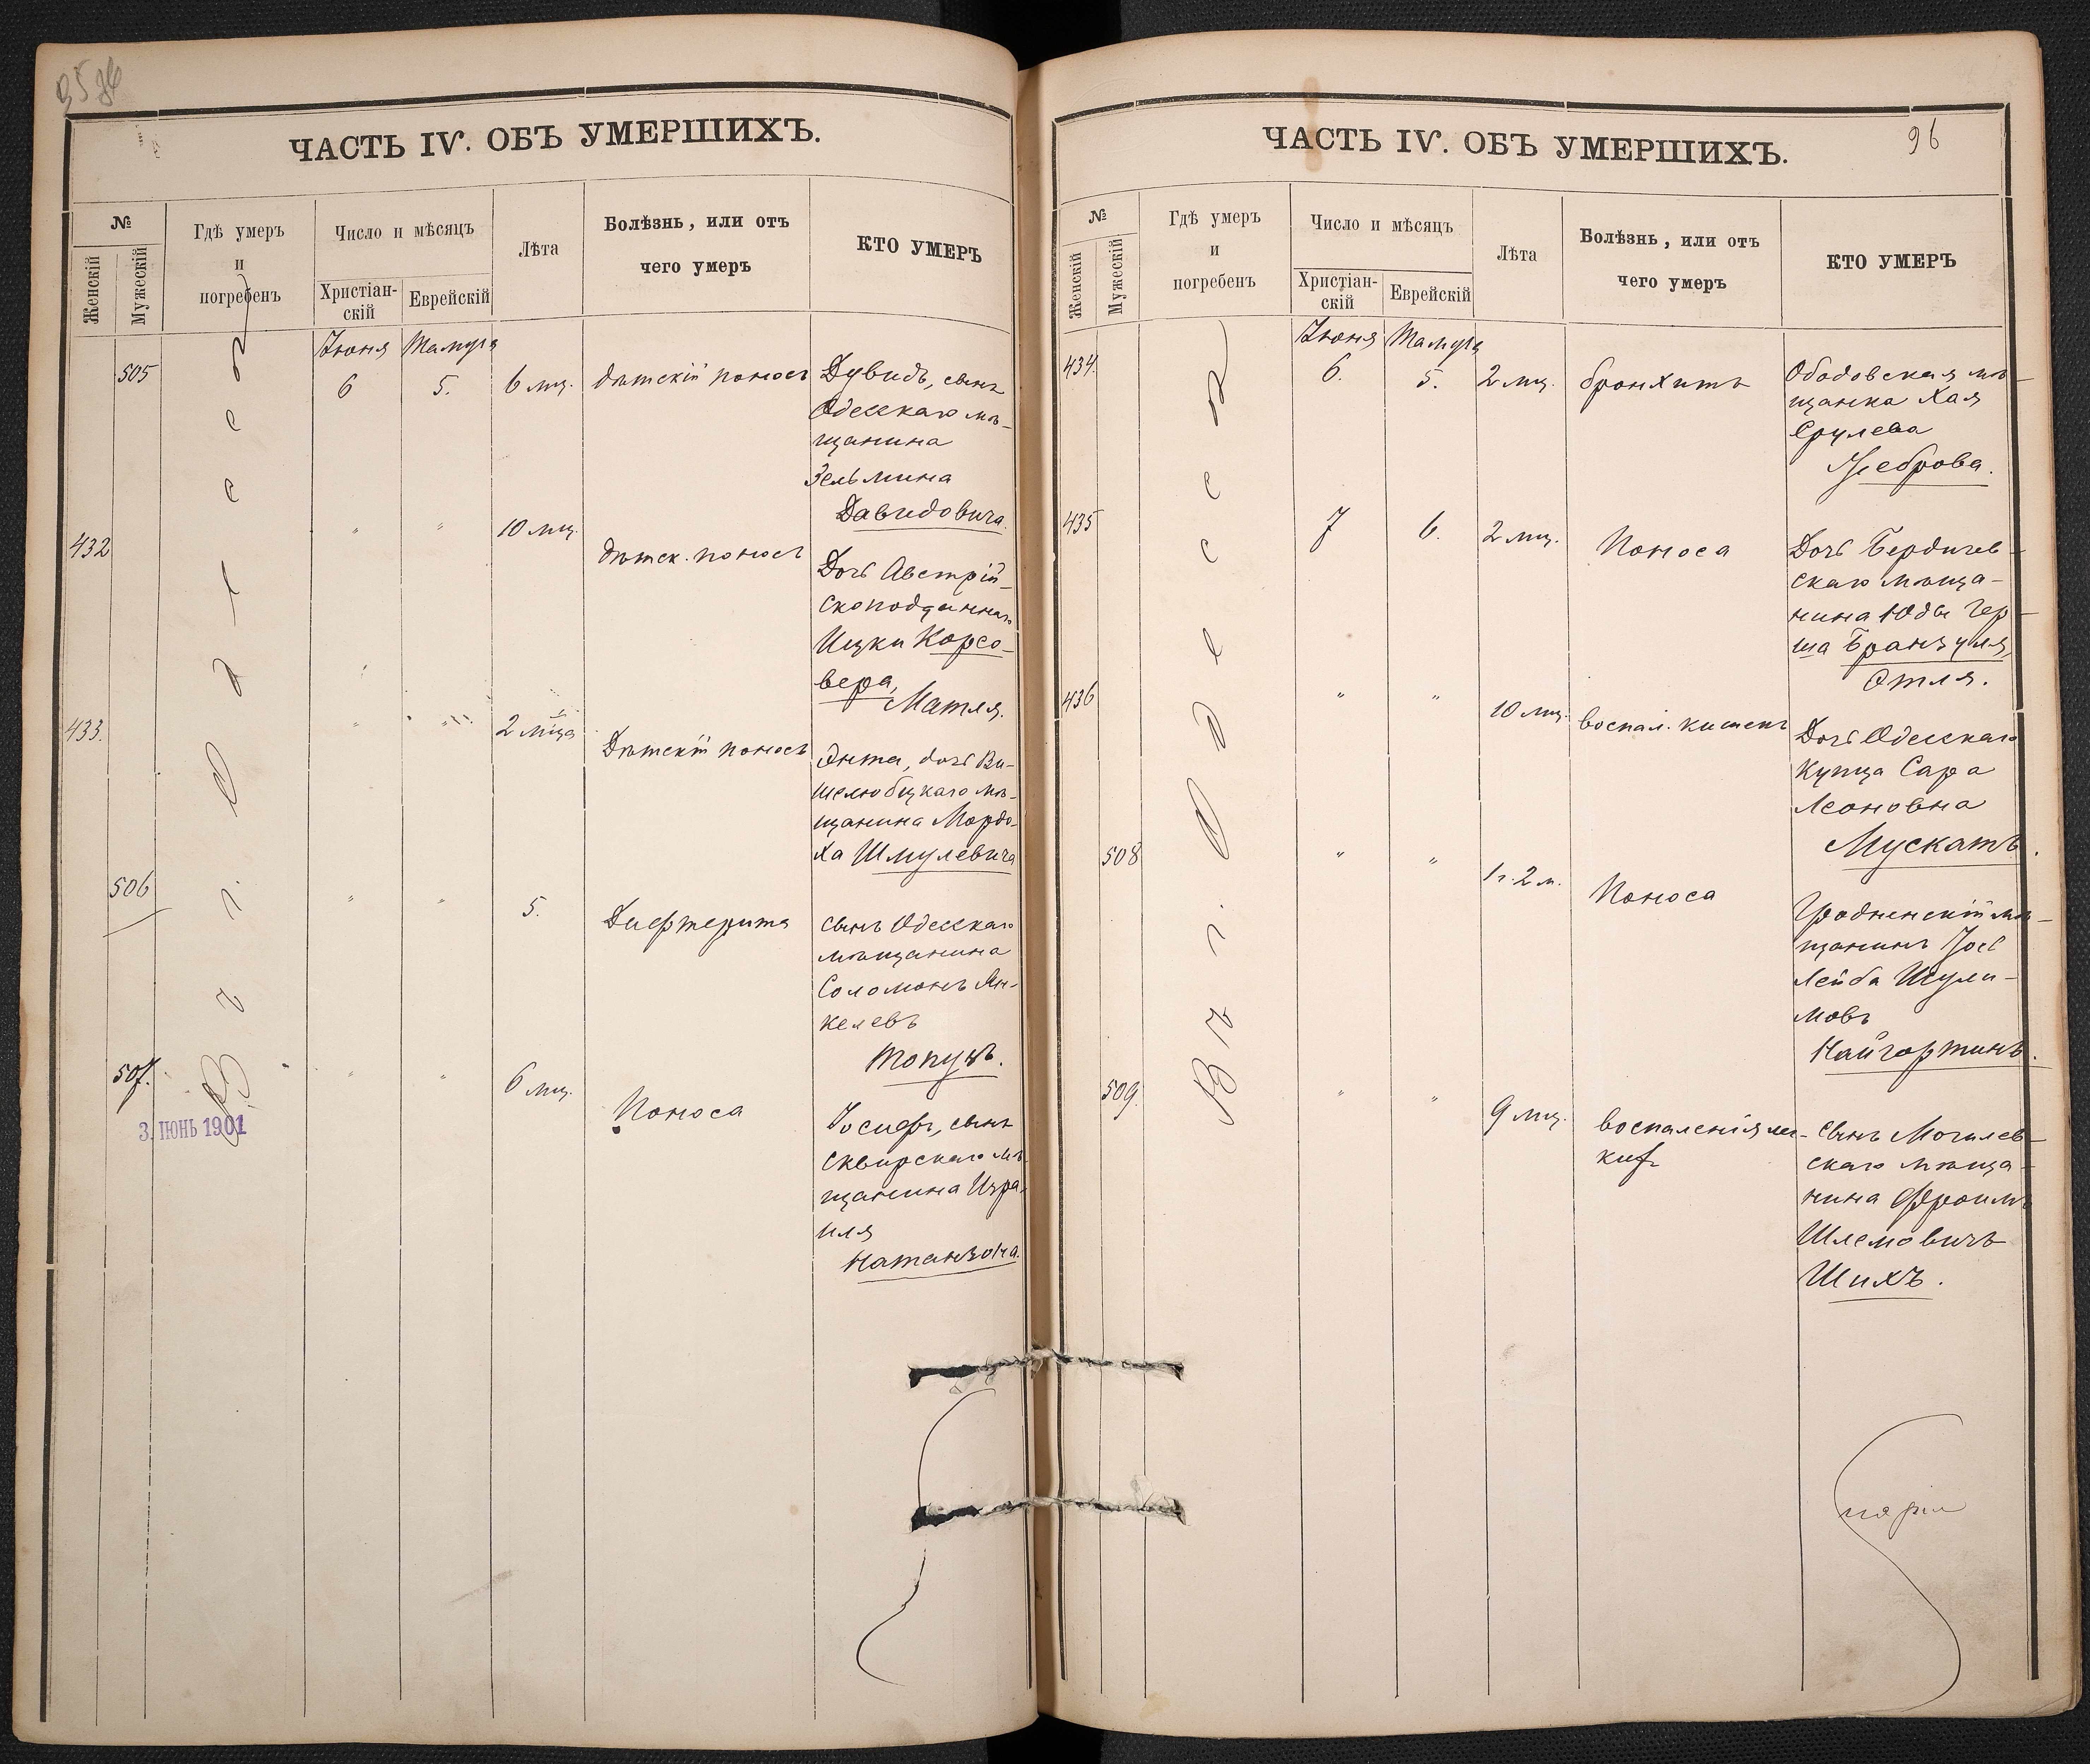 ЧАСТЬ IV. ОБЪ УМЕРШИХЪ.
№
Женскій
Мужескій
Гдѣ умеръ
и
погребенъ
Число и мѣсяцъ
Христіан-
скій
Еврейскій
Лѣта
Болѣзнь, или отъ
чего умеръ
КТО УМЕРЪ
Въ г. Одессѣ
Іюня Тамуза
505 6 5. 6 мц. дѣтскій поносъ Дувидъ, сынъ
Одесскаго мѣ-
щанина
Зельмина
Давидовича.
432 " " 10 мц. дѣтск. поносъ Дочь Австрій-
скоподданнаго
Ицки Корсо-
вера,
Матля.
433. " " 2 мца Дѣтскій поносъ Энта, дочь Ви-
шелюбцкаго мѣ-
щанина Мордо-
ха Шмулевича
506 " " 5. Дифтерита сынъ Одесскаго
мѣщанина
Соломонъ Ян-
келевъ
507. " " 6 мц. Поноса Іосифъ, сынъ
Сквирскаго мѣ-
щанина Изра-
иля
Натанзона.
3. ІЮНЬ 1901
96
ЧАСТЬ IV. ОБЪ УМЕРШИХЪ.
№
Женскій
Мужескій
Гдѣ умеръ
и
погребенъ
Число и мѣсяцъ
Христіан-
скій
Еврейскій
Лѣта
Болѣзнь, или отъ
чего умеръ
КТО УМЕРЪ
Въ г. Одессѣ
Іюня Тамуза
434. 6. 5. 2 мц. бронхитъ Ободовская мѣ-
щанка Хая
Срулева
435 7 6. 2 мц. Поноса Дочь Бердичев-
скаго мѣща-
нина Юды Гер-
ша Бранзуля,
Этля.
436 " " 10 мц. воспал. кишекъ Дочь Одесскаго
купца Сара
Леоновна
Мускатъ.
508 " " 1 г. 2 м. Поноса Гродненскій мѣ-
щанинъ Іос
Лейба Шули-
мовъ
Найгортинъ.
509. " " 9 мц. воспаленія лег- сынъ Могилев-
кихъ скаго мѣща-
нина Фроимъ
Шлемовичъ
Шихъ.